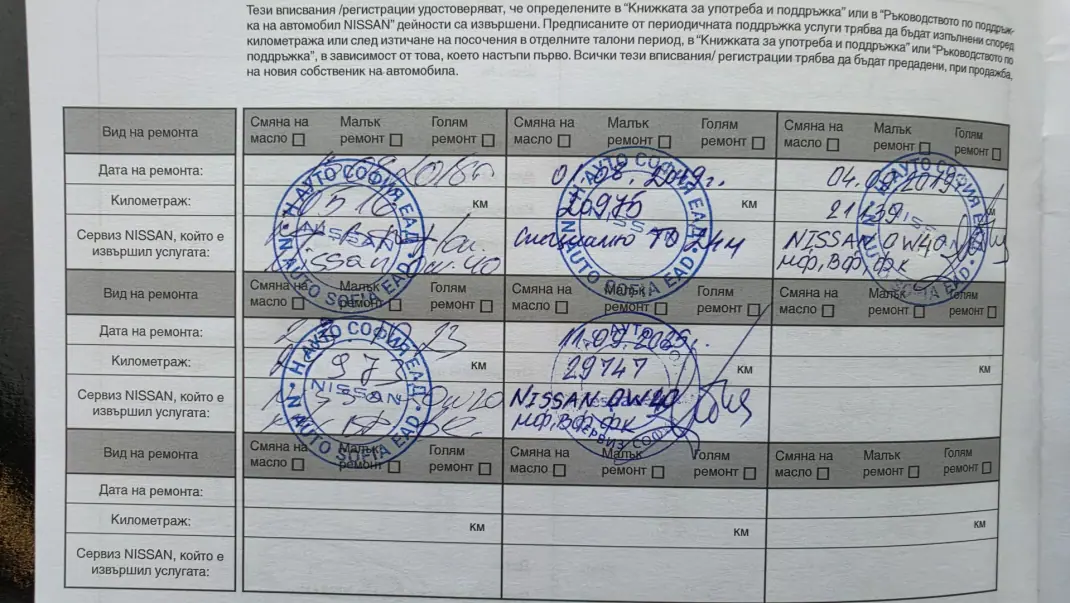 Тези вписвания /регистрации удостоверяват, че определените в "Книжката за употреба и поддръжка" или в "Ръководството по поддръж-
ка на автомобил NISSAN" дейности са извършени. Предписаните от периодичната поддръжка услуги трябва да бъдат изпълнени според
километража или след изтичане на посочения в отделните талони период, в "Книжката за употреба и поддръжка" или "Ръководството по
поддръжка", в зависимост от това, което настъпи първо. Всички тези вписвания/ регистрации трябва да бъдат предадени, при продажба,
на новия собственик на автомобила.
Вид на ремонта
Смяна на масло Малък ремонт Голям ремонт
Смяна на масло Малък ремонт Голям ремонт
Смяна на масло Малък ремонт Голям ремонт
Дата на ремонта:
01.08.2019г.
04.09.2019г.
Километраж:
км
20975 км
21139 км
Сервиз NISSAN, който е
извършил услугата:
Nissan
Специално ТО 24м
NISSAN 0W40
МФ, ВФ, ФК
Н АУТО СОФИЯ ЕАД
NISSAN
N AUTO SOFIA EAD
Вид на ремонта
Смяна на масло Малък ремонт Голям ремонт
Смяна на масло Малък ремонт Голям ремонт
Смяна на масло Малък ремонт Голям ремонт
Дата на ремонта:
Километраж:
км
29747 км
км
Сервиз NISSAN, който е
извършил услугата:
NISSAN 0W20
МФ, ВФ, ФК
Н АУТО СОФИЯ ЕАД
NISSAN
N AUTO SOFIA EAD
Вид на ремонта
Смяна на масло Малък ремонт Голям ремонт
Смяна на масло Малък ремонт Голям ремонт
Смяна на масло Малък ремонт Голям ремонт
Дата на ремонта:
Километраж:
км
км
км
Сервиз NISSAN, който е
извършил услугата: